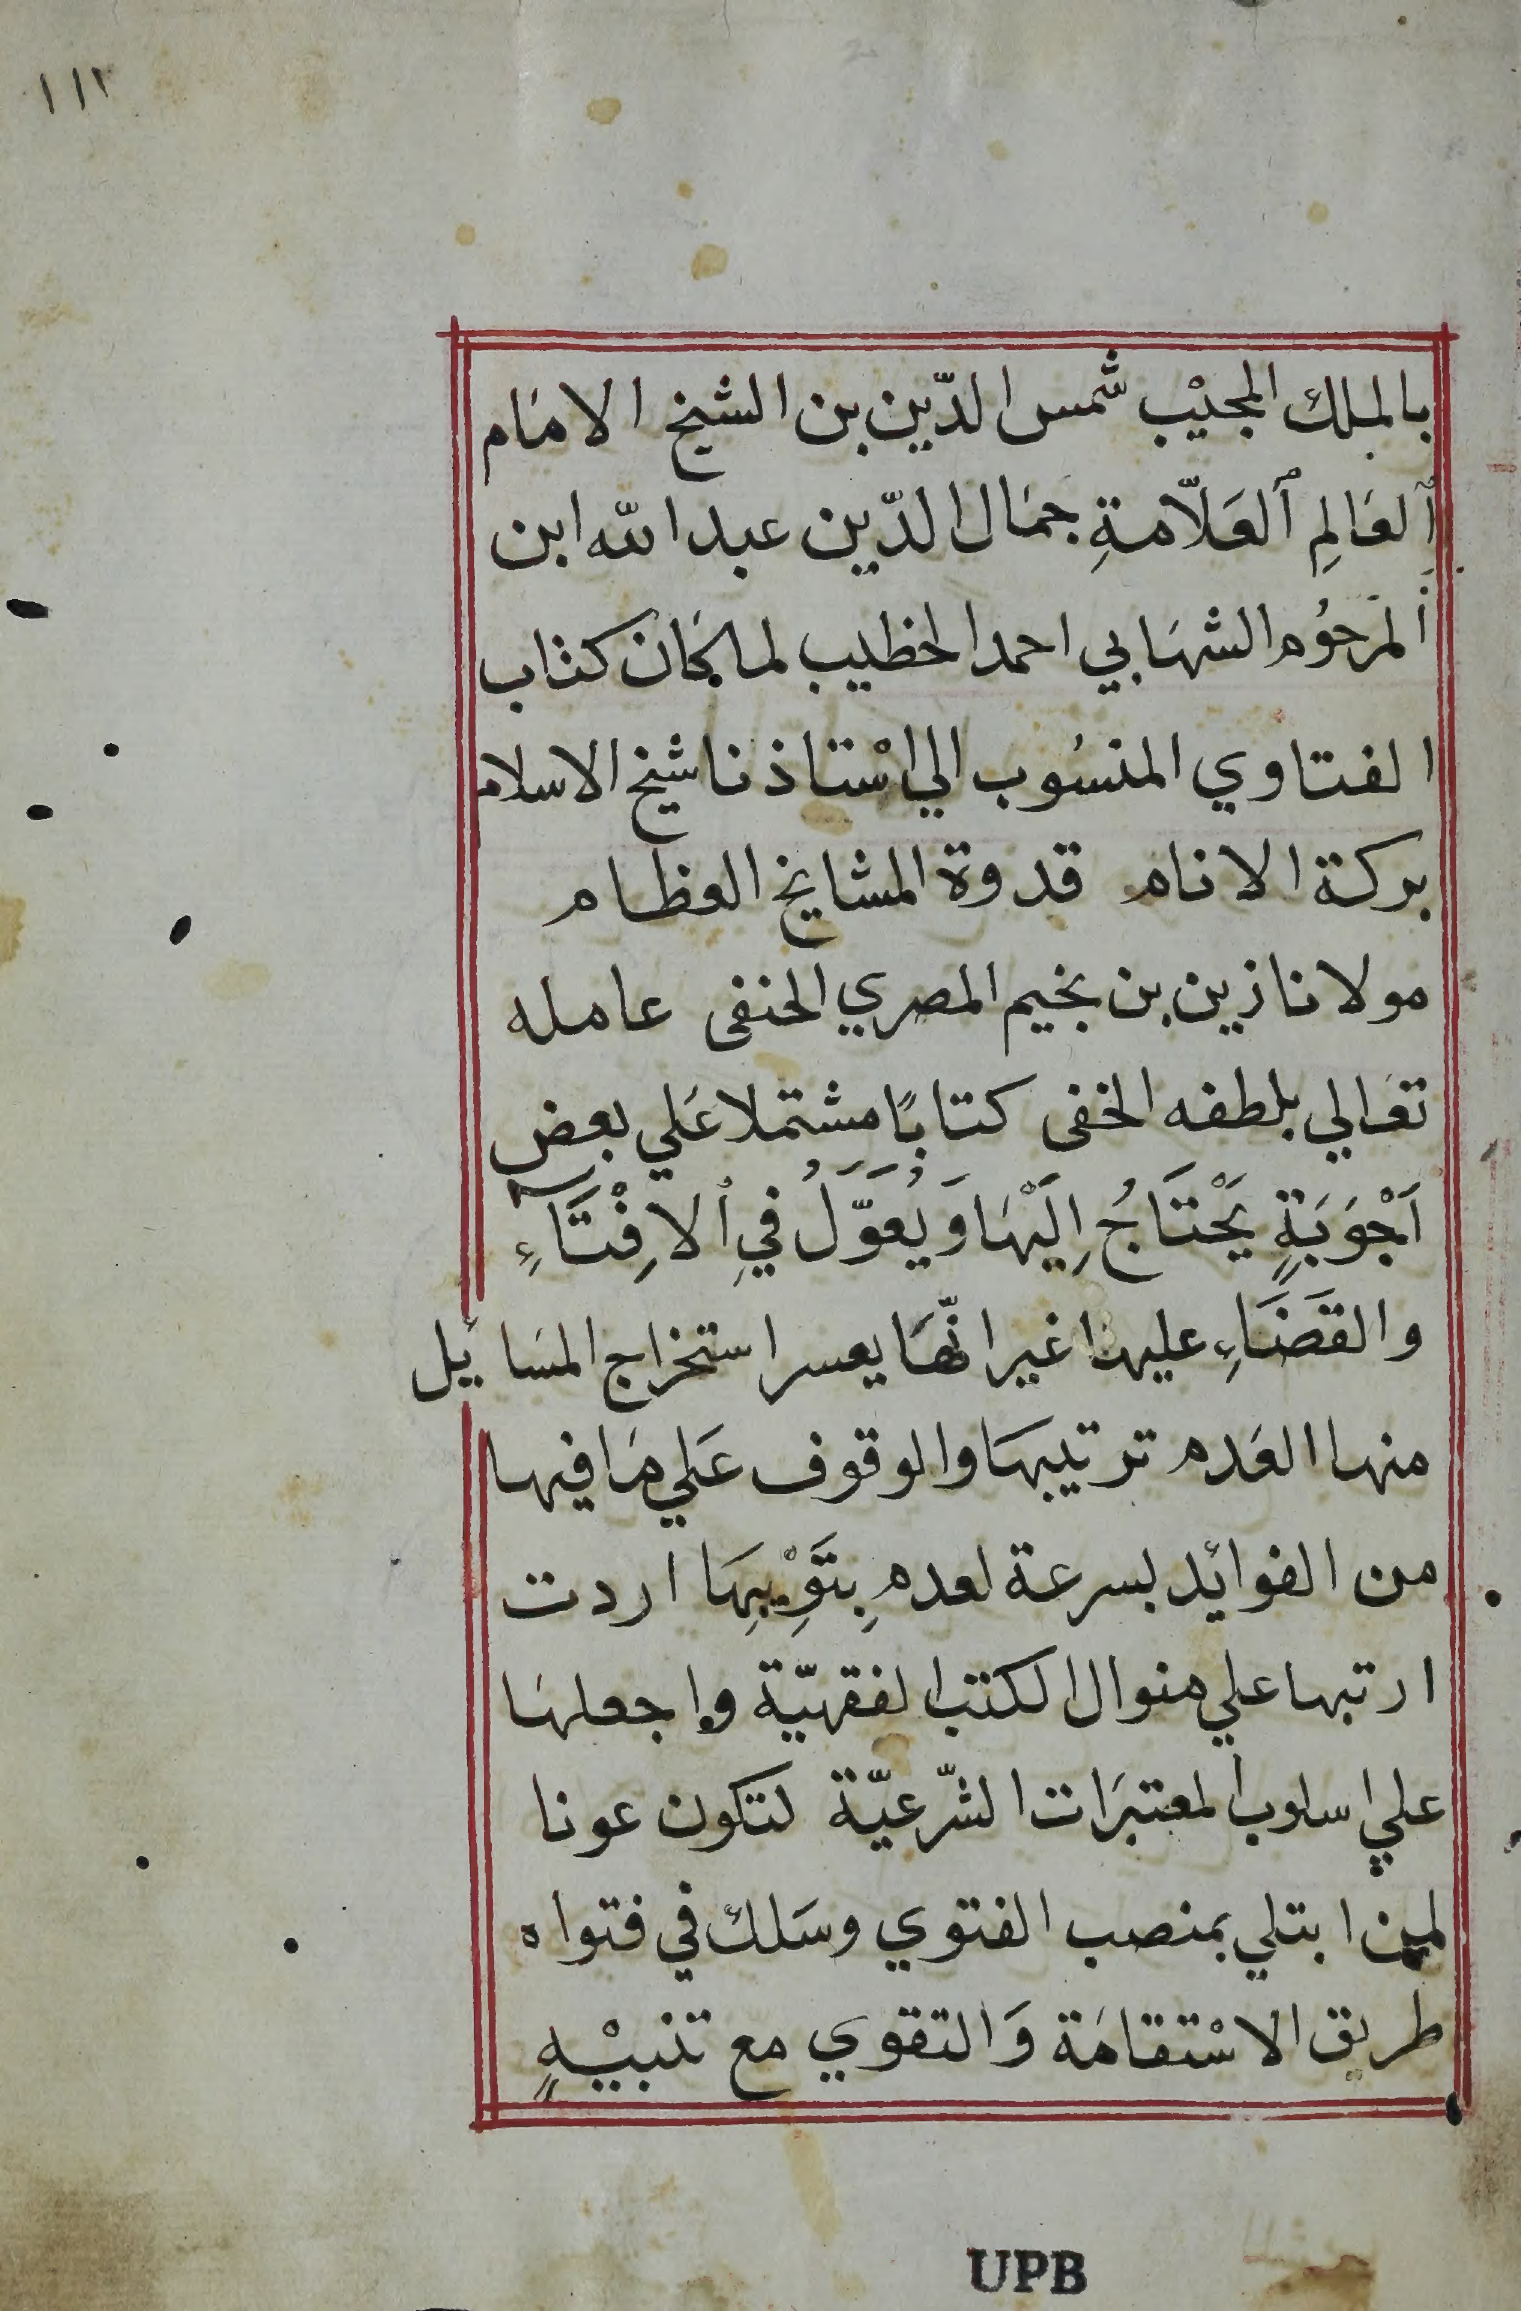 ١١٢
بالملك المجيْب شمس الدّين بن الشيخ الامَام
ٱلعَالِم ٱلعَلّامةِ جمَال الدّين عبد الله ابن
المَرحُوم الشهَابي احمد الخطيب لما كَانَ كتاب
الفتاوي المنسُوب الي اسْتاذنا شيخ الاسلام
بركة الانام قدوة المشايخ العظام
مولانا زين بن نجيم المصري الحنفى عامله
تعَالي بلطفه الخفى كتابًا مشتملا عَلي بعض
اَجْوَبَةٍ يَحْتَاجُ اِلَيْهَا وَيُعَوَّلُ فيِ ٱلاِفْتَآءِ
والقَضَاءِ عليها غير انّهَا يعسر استخراج المسَائيل
منها العَدم ترتيبهَا والوقوف عَلي مَا فيها
من الفوائد بسرعة لعدمِ بتَوْيبِهَا اردت
ارتبها علي منوال الكتب الفقهيّة واجعلهَا
علي اسلوب المعتبرَات الشّرعيّة لتكون عونا
لمن ابتلي بمنصب الفتوي وسَلك في فتواه
طريق الاسْتقامَة وَالتقوي مع تنبيْهٍ
UPB